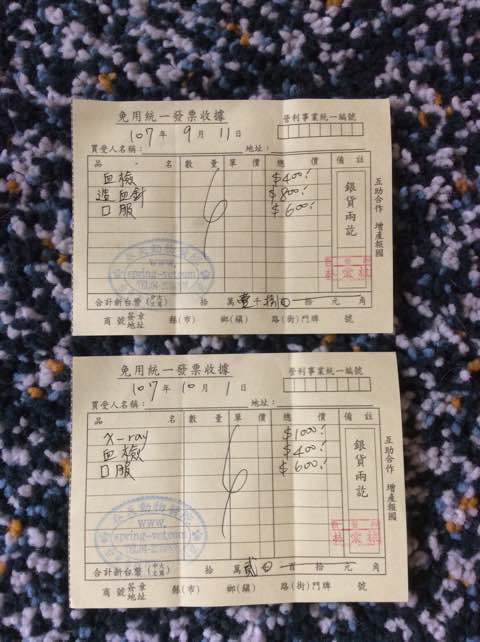 免用統一發票收據
營利事業統一編號
107年 9月 11日
買受人名稱： 地址：
品名 數量 單價 總價 備註
血檢 $400
造血針 $800
口服 $600
銀貨兩訖
互助合作 增產報國
www.
spring-vet.com
合計新台幣 拾 萬 壹千 捌百 拾 元 角
商號簽章地址 縣(市) 鄉(鎮) 路(街)門牌 號
免用統一發票收據
營利事業統一編號
107年 10月 1日
買受人名稱： 地址：
品名 數量 單價 總價 備註
X-ray $1000
血檢 $400
口服 $600
銀貨兩訖
互助合作 增產報國
動物醫院
www.
spring-vet.com
合計新台幣 拾 萬 貳 拾 元 角
商號簽章地址 縣(市) 鄉(鎮) 路(街)門牌 號